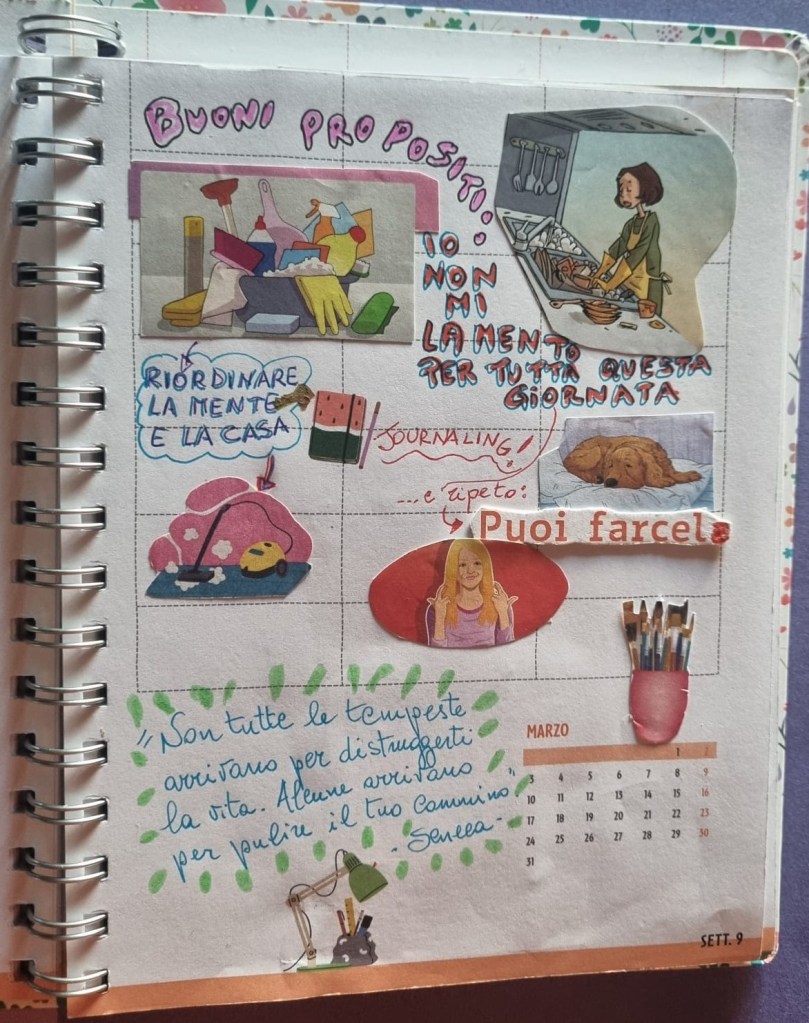 BUONI PROPOSITI:
IO
NON
MI
LAMENTO
PER TUTTA QUESTA
GIORNATA
RIORDINARE
LA MENTE
E LA CASA
JOURNALING!
...e ripeto:
Puoi farcela
"Non tutte le tempeste
arrivano per distruggerti
la vita. Alcune arrivano
per pulire il tuo cammino"
- Seneca -
MARZO
1 2
3 4 5 6 7 8 9
10 11 12 13 14 15 16
17 18 19 20 21 22 23
24 25 26 27 28 29 30
31
SETT. 9